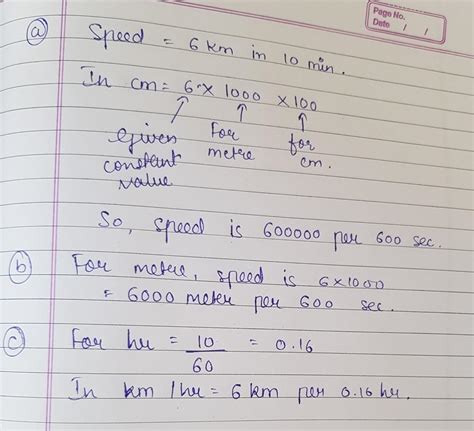 Page No.
Date / /
(a) Speed = 6 km in 10 min.
In cm = 6 × 1000 × 100
Given constant value
For metre
for cm.
So, speed is 600000 per 600 sec.
(b) For metre, speed is 6×1000
= 6000 meter per 600 sec.
(c) For hr = 10/60 = 0.16
In km / hr = 6 km per 0.16 hr.